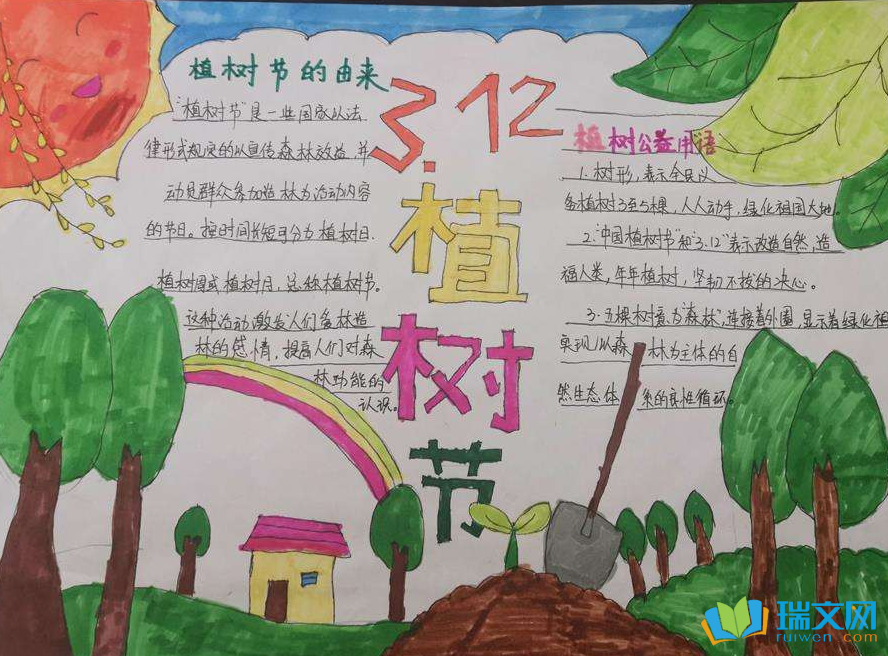 植树节的由来
"植树节"是一些国家以法
律形式规定的以宣传森林效益,并
动员群众参加造林为活动内容
的节日。按时间长短可分为植树日.
植树周或植树月,总称植树节。
这种活动,激发人们爱林造
林的感情,提高人们对森
林功能的
认识。
3.12
植
树
节
植树公益用语
1.树形,表示全民义
务植树3至5棵,人人动手,绿化祖国大地。
2."中国植树节"和"3.12"表示改造自然,造
福人类,年年植树,坚韧不拔的决心。
3.五棵树意为"森林",连接着外圈,显示着绿化祖
实现以森林为主体的自
然生态体系的良性循环。
瑞文网
ruiwen.com